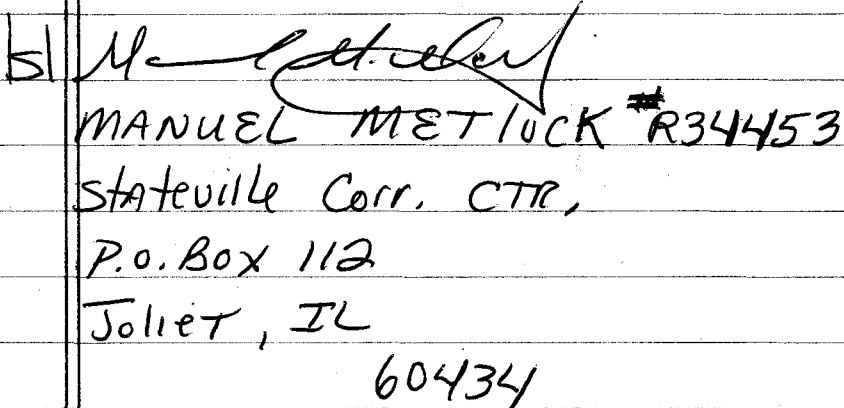 |s|
MANUEL METLUCK #R34453
Stateville Corr. CTR,
P.O. Box 112
Joliet, IL
60434